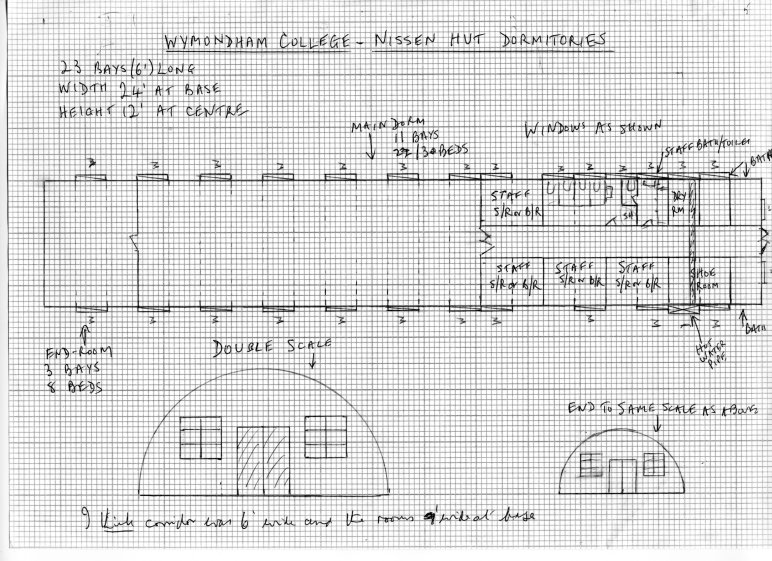 WYMONDHAM COLLEGE - NISSEN HUT DORMITORIES
23 BAYS (6') LONG
WIDTH 24' AT BASE
HEIGHT 12' AT CENTRE
MAIN DORM
11 BAYS
/30 BEDS
WINDOWS AS SHOWN
STAFF BATH/TOILET
BATH
3 3 3 3 3 3 3 3 3 3 3 3
STAFF
S/R or B/R
SH
DRY
RM
STAFF
S/R or B/R
STAFF
S/R or B/R
STAFF
S/R or B/R
SHOE
ROOM
3 3 3 3 3 3 3 3 3 3 3
END-ROOM
3 BAYS
8 BEDS
HOT
WATER
PIPE
BATH
DOUBLE SCALE
END TO SAME SCALE AS ABOVE
I think corridor was 6' wide and the rooms 9' wide at base